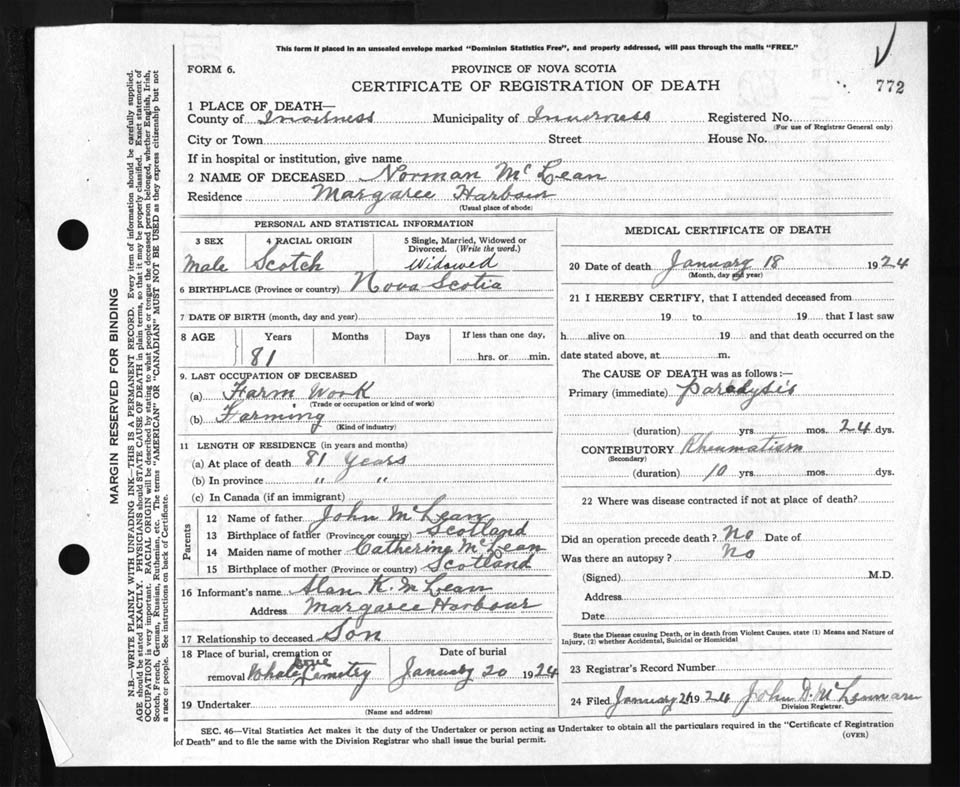 This form if placed in an unsealed envelope marked "Dominion Statistics Free", and properly addressed, will pass through the mails "FREE."
FORM 6.
PROVINCE OF NOVA SCOTIA
CERTIFICATE OF REGISTRATION OF DEATH
772
1 PLACE OF DEATH—
County of Inverness Municipality of Inverness Registered No.
(For use of Registrar General only)
City or Town Street House No.
If in hospital or institution, give name
2 NAME OF DECEASED Norman McLean
Residence Margaree Harbour
(Usual place of abode)
PERSONAL AND STATISTICAL INFORMATION
3 SEX 4 RACIAL ORIGIN 5 Single, Married, Widowed or Divorced. (Write the word.)
Male Scotch Widowed
6 BIRTHPLACE (Province or country) Nova Scotia
7 DATE OF BIRTH (month, day and year)
8 AGE Years Months Days If less than one day,
81 hrs. or min.
9. LAST OCCUPATION OF DECEASED
(a) Farm Work
(Trade or occupation or kind of work)
(b) Farming
(Kind of industry)
11 LENGTH OF RESIDENCE (in years and months)
(a) At place of death 81 Years
(b) In province " "
(c) In Canada (if an immigrant)
Parents
12 Name of father John McLean
13 Birthplace of father (Province or country) Scotland
14 Maiden name of mother Catherine McLean
15 Birthplace of mother (Province or country) Scotland
16 Informant's name Alan K. McLean
Address Margaree Harbour
17 Relationship to deceased Son
18 Place of burial, cremation or removal Whale Cove Cemetry
Date of burial
January 20 1924
19 Undertaker
(Name and address)
MEDICAL CERTIFICATE OF DEATH
20 Date of death January 18 1924
(Month, day and year)
21 I HEREBY CERTIFY, that I attended deceased from
19 to 19 that I last saw
h alive on 19 and that death occurred on
date stated above, at m.
The CAUSE OF DEATH was as follows:—
Primary (immediate) Paralysis
(duration) yrs. mos. 24 dys.
CONTRIBUTORY Rheumatism
(Secondary)
(duration) 10 yrs. mos. dys.
22 Where was disease contracted if not at place of death?
Did an operation precede death? No Date of
Was there an autopsy? No
(Signed) M.D.
Address
Date
State the Disease causing Death, or in death from Violent Causes, state (1) Means and Nature of
Injury, (2) whether Accidental, Suicidal or Homicidal
23 Registrar's Record Number
24 Filed January 1924 John D. McLennan
Division Registrar.
SEC. 46—Vital Statistics Act makes it the duty of the Undertaker or person acting as Undertaker to obtain all the particulars required in the "Certificate of Registration
of Death" and to file the same with the Division Registrar who shall issue the burial permit.
(OVER)
MARGIN RESERVED FOR BINDING
N.B.—WRITE PLAINLY WITH UNFADING INK—THIS IS A PERMANENT RECORD. Every item of information should be carefully supplied.
AGE should be stated EXACTLY. PHYSICIANS should STATE CAUSE OF DEATH in plain terms, so that it may be properly classified. Exact statement of
OCCUPATION is very important. RACIAL ORIGIN will be described by stating to what people or tongue the deceased person belonged, whether English, Irish,
Scotch, French, German, Russian, Ruthenian, etc. The terms "AMERICAN" OR "CANADIAN" MUST NOT BE USED as they express citizenship but not
a race or people. See instructions on back of Certificate.